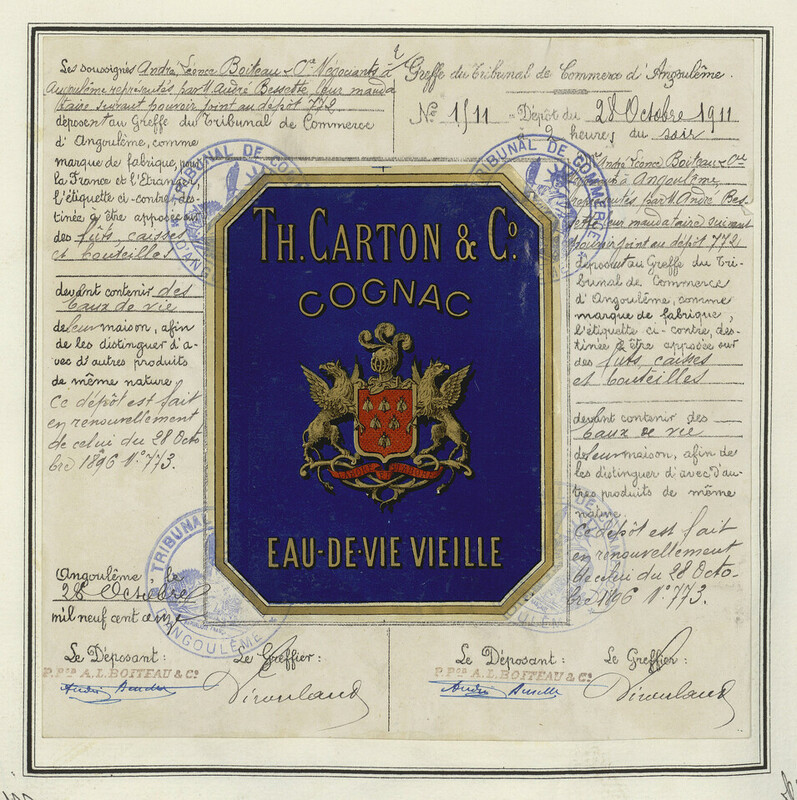 Les soussignés André, Léonce Boiteau & Cie Négociants à
Angoulême représentés par M. André Bessette, leur manda
taire suivant pouvoir joint au dépôt 772
déposent au Greffe du Tribunal de Commerce
d'Angoulême, comme
marque de fabrique, pour
la France et l'Etranger,
l'étiquette ci-contre, des-
tinée à être apposée sur
des fûts, caisses
et bouteilles
devant contenir des
Eaux de vie
de leur maison, afin
de les distinguer d'a-
vec d'autres produits
de même nature
Ce dépôt est fait
en renouvellement
de celui du 28 Octo-
bre 1896 N° 773.
Angoulême, le
28 Octobre
mil neuf cent onze
Le Déposant :
Le Greffier :
P. Pon A. L. BOITEAU & Co
Greffe du Tribunal de Commerce d'Angoulême.
No 1,111 = Dépôt du 28 Octobre 1911
à 2 heures du soir
André Léonce Boiteau & Cie
à Angoulême,
représentés par M. André Bes
leur mandataire suivant
pouvoir joint au dépôt 772
déposent au Greffe du Tri-
bunal de Commerce
d'Angoulême, comme
marque de fabrique,
l'étiquette ci-contre, des-
tinée à être apposée sur
des fûts, caisses
et bouteilles
devant contenir des
Eaux de vie
de leur maison, afin de
les distinguer d'avec d'au-
tres produits de même
nature.
Ce dépôt est fait
en renouvellement
de celui du 28 Octo-
bre 1896 N° 773.
Le Déposant :
Le Greffier :
P. Pon A. L. BOITEAU & Co
TH. CARTON & Co.
COGNAC
LABORE ET LABORE
EAU-DE-VIE VIEILLE
TRIBUNAL DE COM
D'AN
TRIBUNAL DE COMMERCE
TRIBUNAL
D'ANGOULÊME